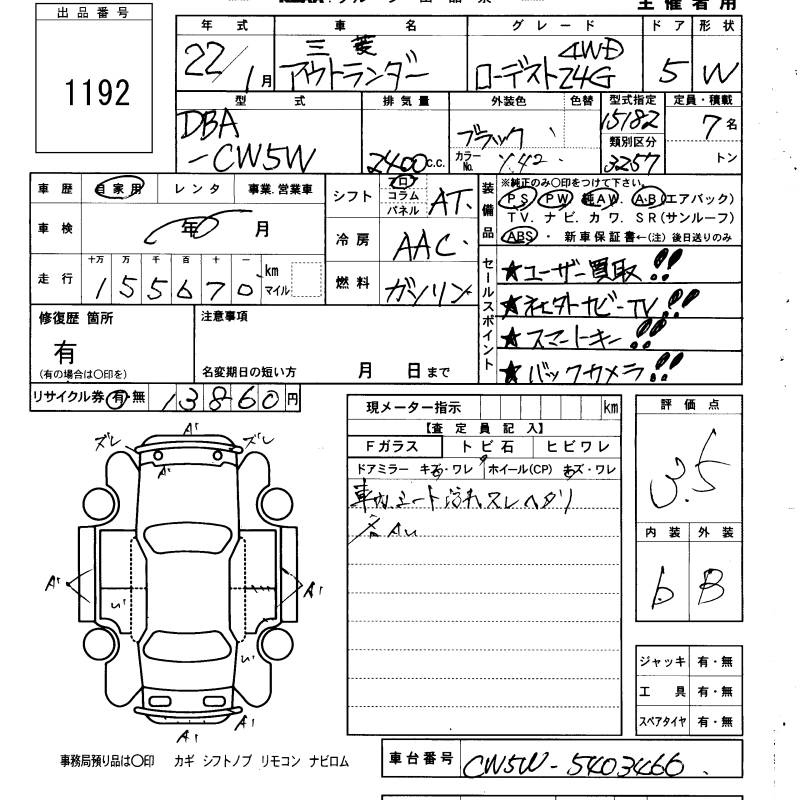 出品番号
1192
主催者用
年式 車名 グレード ドア 形状
22/1月 三菱 アウトランダー 4WD ローデスト24G 5 W
型式 排気量 外装色 色替 型式指定 定員・積載
DBA-CW5W 2400C.C. ブラック 15182 7名
カラーNo. X42 類別区分 3257 トン
車歴 自家用 レンタ 事業.営業車
シフト フロ コラム パネル AT.
装備品 ※純正のみ〇印をつけて下さい。
PS PW 純AW. A.B(エアバック)
TV. ナビ. カワ. SR(サンルーフ)
ABS・ 新車保証書←(注)後日送りのみ
車検 年 月
冷房 AAC.
走行 十万 万 千 百 十 一
155670 km マイル
燃料 ガソリン
セールスポイント
★ユーザー買取!!
★社外ナビーTV!!
★スマートキー!!
★バックカメラ!!
修復歴 箇所
有
(有の場合は〇印を)
注意事項
名変期日の短い方 月 日まで
リサイクル券 有・無 13860円
現メーター指示 km
【査定員記入】
Fガラス トビ石 ヒビワレ
ドアミラー キズ・ワレ ホイール(CP) キズ・ワレ
車内シート汚れスレヘタリ
各AU
評価点
3.5
内装 外装
b B
ズレ A1 ズレ
A1
A1 A1
U1
U1
A1 A1
ジャッキ 有・無
工具 有・無
スペアタイヤ 有・無
事務局預り品は〇印 カギ シフトノブ リモコン ナビロム
車台番号 CW5W-5403466